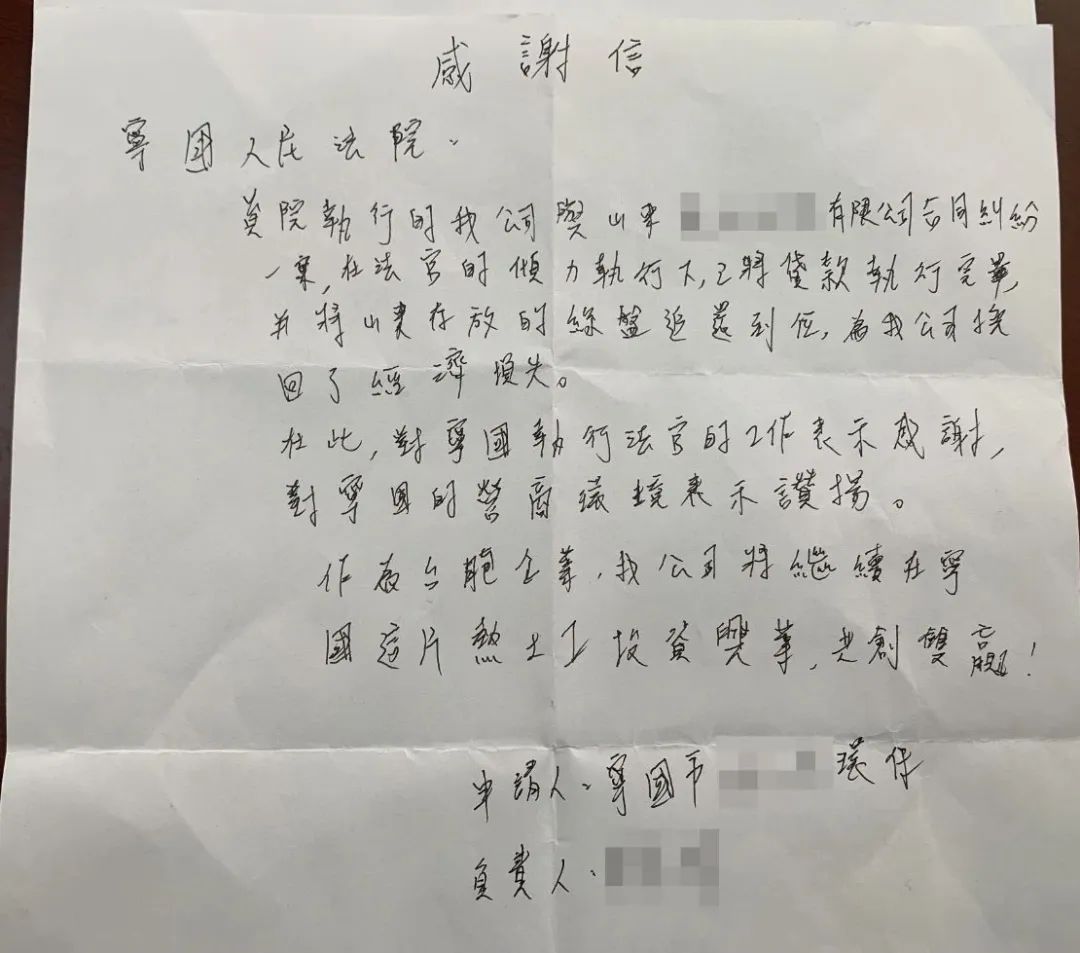 感謝信
寧國人民法院：
貴院執行的我公司與山東有限公司合同糾紛
一案，在法官的傾力執行下，已將貨款執行完畢，
并將山東存放的絲盤追還到位，為我公司挽
回了經濟損失。
在此，對寧國執行法官的工作表示感謝，
對寧国的營商環境表示讚揚。
作為台胞企業，我公司將繼續在寧
國這片熱土上投資興業，共創雙贏！
申請人：寧國市環保
負責人：